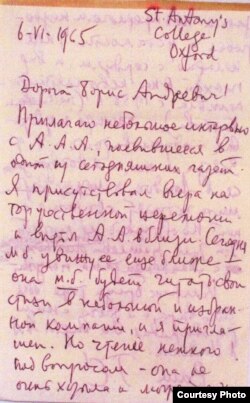 6-VI-1965
St. Antony's
College
Oxford
Дорогой Борис Андреевич
Прилагаю небольшое интервью
с А.А.А., появившееся в
одной из сегодняшних газет.
Я присутствовал вчера на
торжественной церемонии
и видел А.А. вблизи. Сегодня
м.б. увижу ее еще ближе —
она м.б. будет читать свои
стихи в небольшой и избран-
ной компании, и я пригла-
шен. Но чтение немного
под вопросом – она не
очень хорошо а
Courtesy Photo